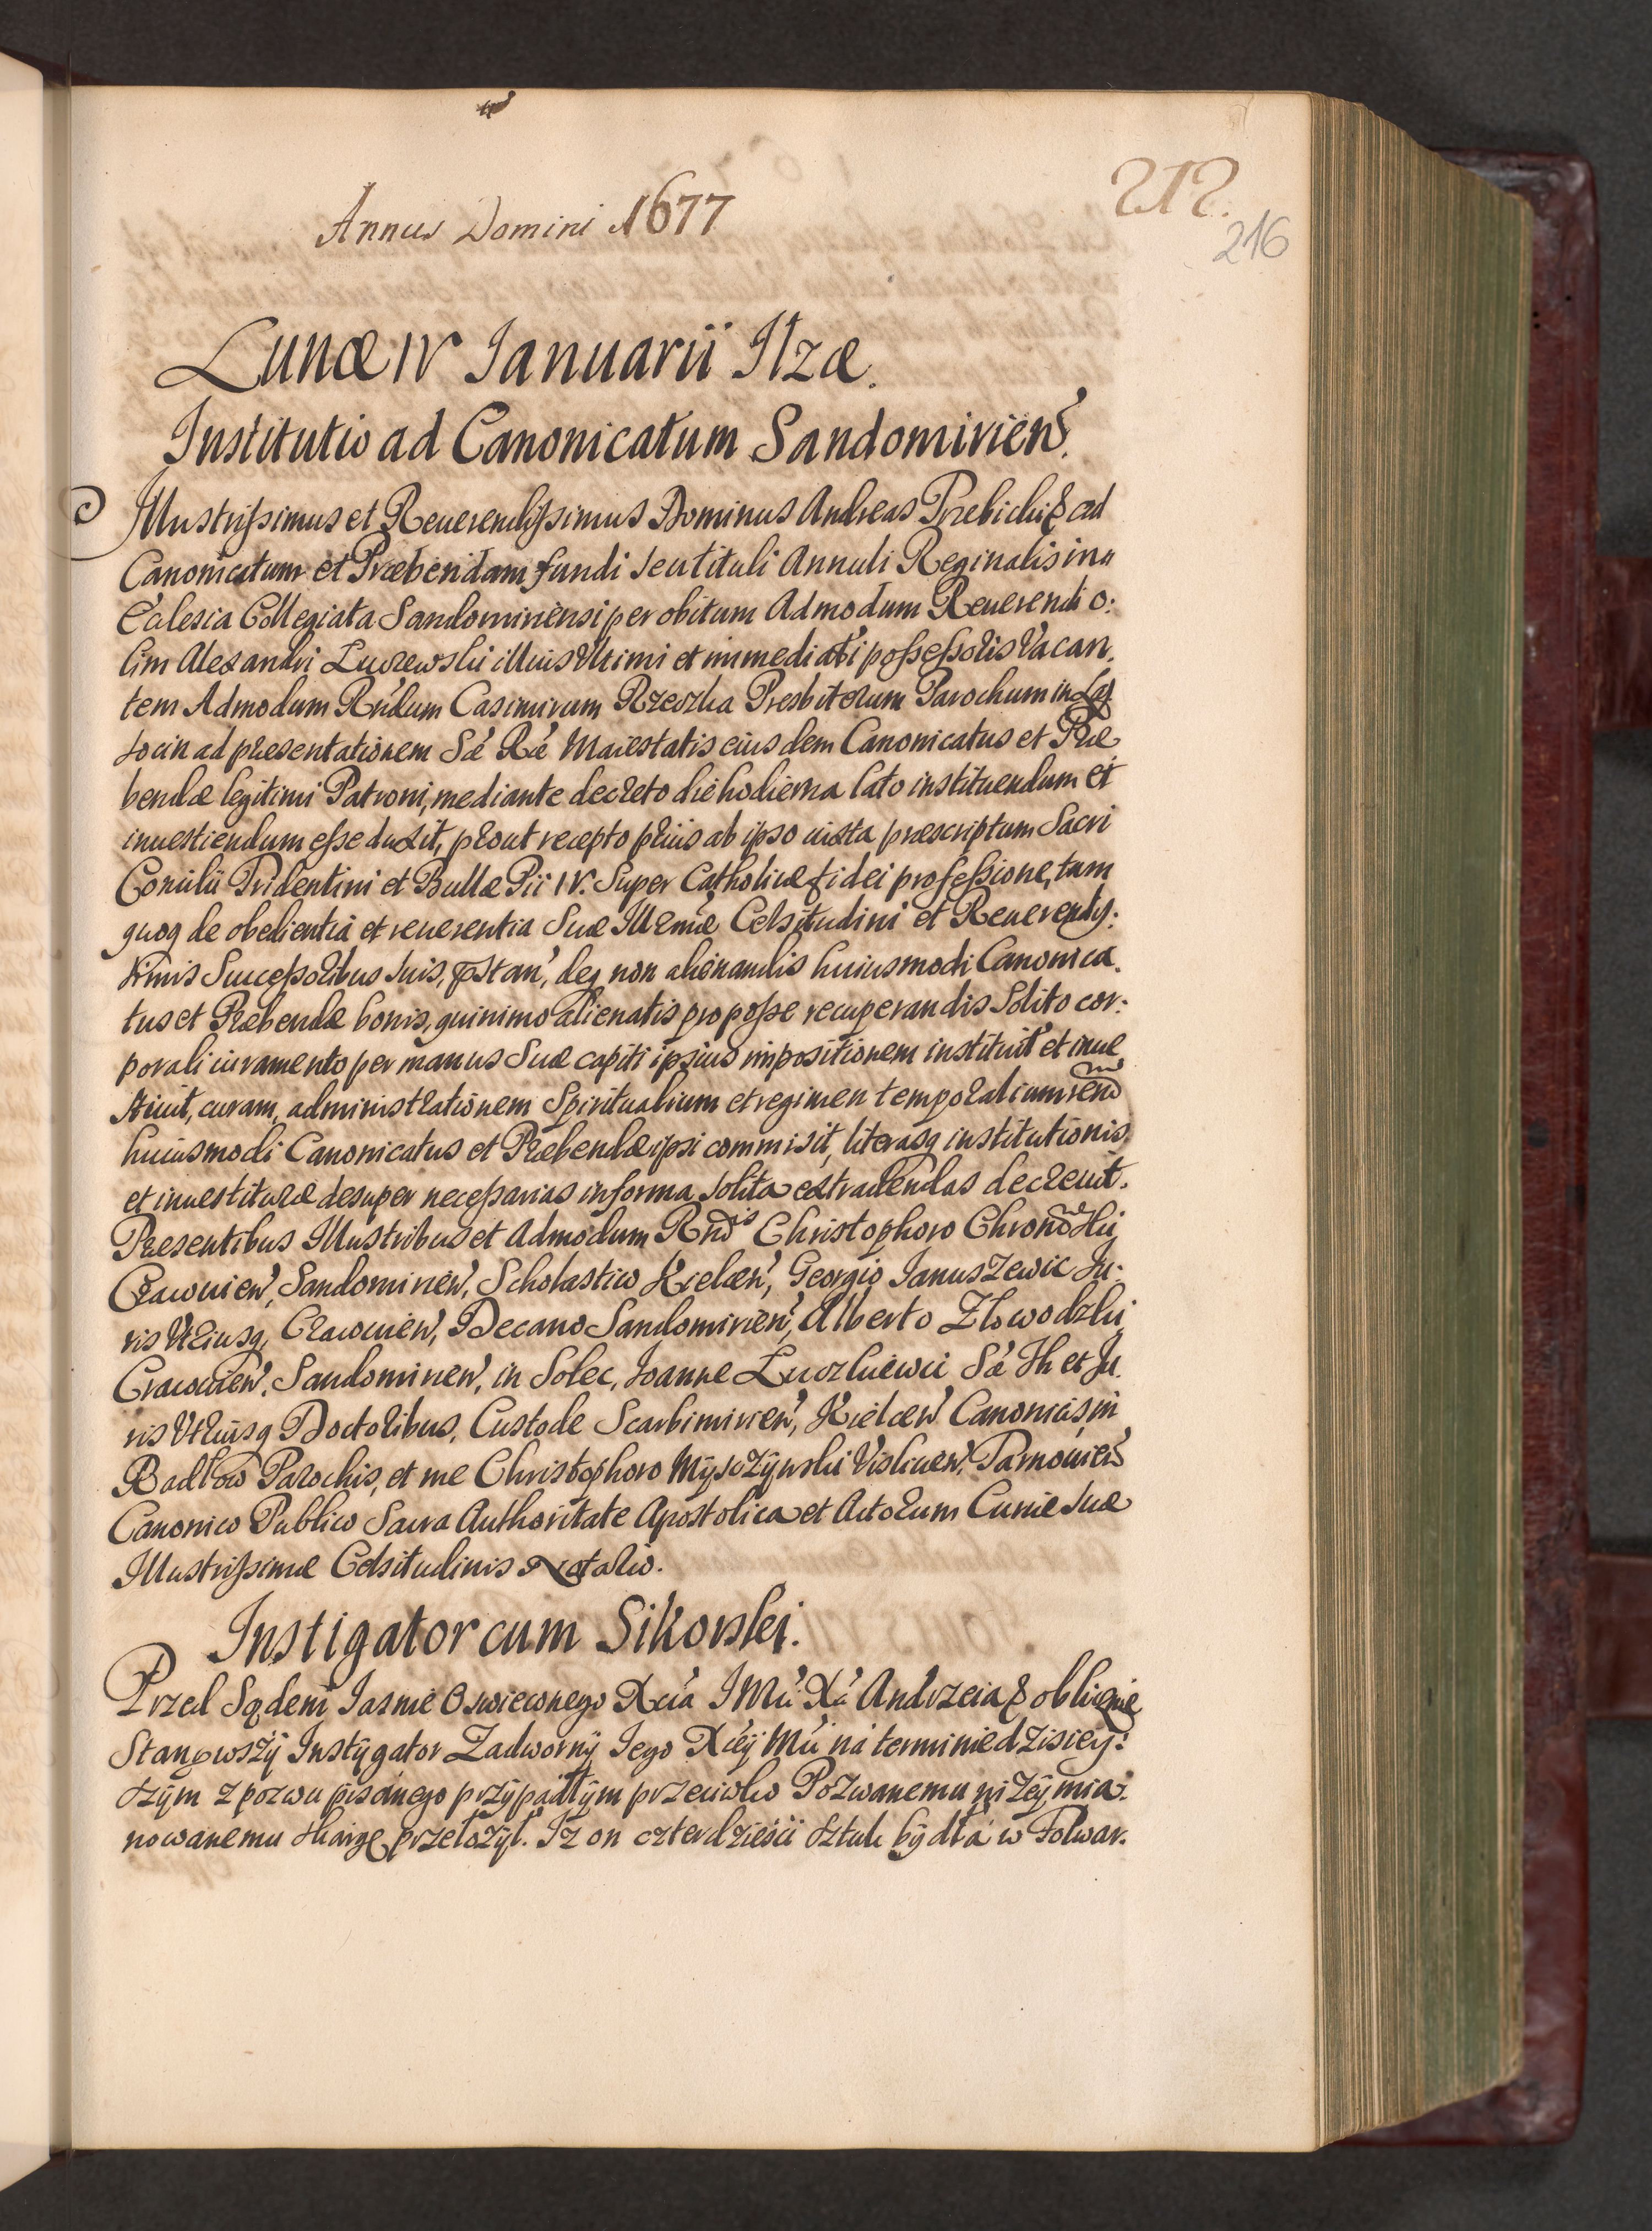 Annus Domini 1677
212.
216
Lunæ IV Januarii Ilzæ.
Institutio ad Canonicatum Sandomirien̄.
Illustrissimus et Reuerendissimus Dominus Andreas Trzebicki & ad
Canonicatum et Præbendam fundi seu tituli Annuli Reginalis in
Ecclesia Collegiata Sandomiriensi per obitum Admodum Reuerendi o:
lim Alexandri Luczewski illius Vltimi et immediati possessoris Vacan.
tem Admodum Rndum Casimirum Rzeszka Presbiterum Parochum in
ad presentationem Sæ Ræ Maiestatis eiusdem Canonicatus et Præ
bendæ legitimi Patroni, mediante decreto die hodierna lato instituendum et
inuestiendum esse duxit, prout recepto prius ab ipso iuxta prescriptum Sacri
Concilii Tridentini et Bullæ Pii IV. Super Catholicæ fidei professione, tam
quoq de obedientia et reuerentia Suæ Illmæ Celsitudini et Reuerendis:
simis Successoribus suis, deq non alienandis huiusmodi Canonica.
tus et Præbendæ bonis, quinimo alienatis pro posse recuperandis Solito cor:
porali iuramento per manus Suæ capiti ipsius impositionem instituit et inue
stiuit, curam, administrationem Spiritualium et regimen temporalium
huiusmodi Canonicatus et Præbendæ ipsi commisit, literasq institutionis
et inuestituræ desuper necessarias in forma solita extradendas decreuit.
Presentibus Illustribus et Admodum Rndis Christophoro
Cracouien, Sandomirien, Scholastico Kielcen, Georgio Januszewic Ju:
ris Vtriusq, Cracouien, Decano Sandomirien, Alberto Złowodzki
Cracouien, Sandomirien, in Solec, Joanne Luczkiewic Sæ Th et Ju
ris Vtriusq Doctoribus, Custode Scarbimirien, Kielcen Canonicis, in
Radłow Parochis, et me Christophoro Myszczynski Vislicien, Tarnouien
Canonico Publico Sacra Authoritate Apostolica et Actorum Curiæ Suæ
Illustrissimæ Celsitudinis Notario.
Instigator cum Sikorski.
Przed Sądem Jasnie Oswieconego Xcia J Mci Xa Andrzeia & oblicznie
Stanąwszy Instygator Zadworny Jego Xcey Mci na terminie dzisiey:
szym z pozwu pisanego przypadłym przeciwko Pozwanemu niżey mia:
nowanemu skargę przełożył. Iz on czterdzieści sztuk bydła w Folwar.